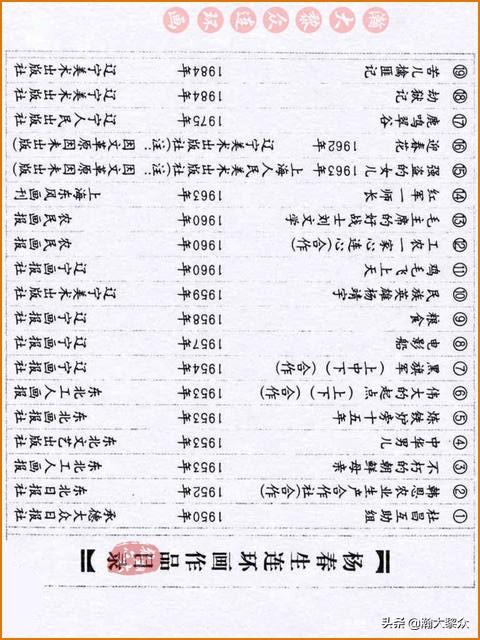 【杨春生连环画作品目录】
① 社昌互助组 1950年 承德大众日报社
② 韩恩农业生产合作社(合作) 1952年 东北日报社
③ 不朽的朝鲜母亲 1953年 东北工人画报
④ 中华男儿 1953年 东北文艺出版社
⑤ 炼铁炉旁十五年 1953年 东北画报社
⑥ 伟大的起点(上下)(合作) 1953年 东北工人画报
⑦ 黑旗军(上中下)(合作) 1954年 辽宁画报社
⑧ 电影船 1957年 辽宁画报社
⑨ 粮食 1958年 辽宁画报社
⑩ 民族英雄杨靖宇 1959年 辽宁美术出版社
⑪ 鸡毛飞上天 1960年 辽宁画报社
⑫ 工农一家心连心(合作) 1960年 农民画报
⑬ 毛主席的好战士刘文学 1960年 农民画报
⑭ 红军一师长 1963年 上海东风画刊
⑮ 强盗的女儿 1963年 上海人民美术出版社(注：因文革原因未出版)
⑯ 迎春花 1962年 辽宁美术出版社(注：因文革原因未出版)
⑰ 鹿鸣翠谷 1975年 辽宁人民出版社
⑱ 劫狱记 1984年 辽宁美术出版社
⑲ 苦儿擒匪记 1984年 辽宁美术出版社
瀚大黎众连环画
头条 @瀚大黎众